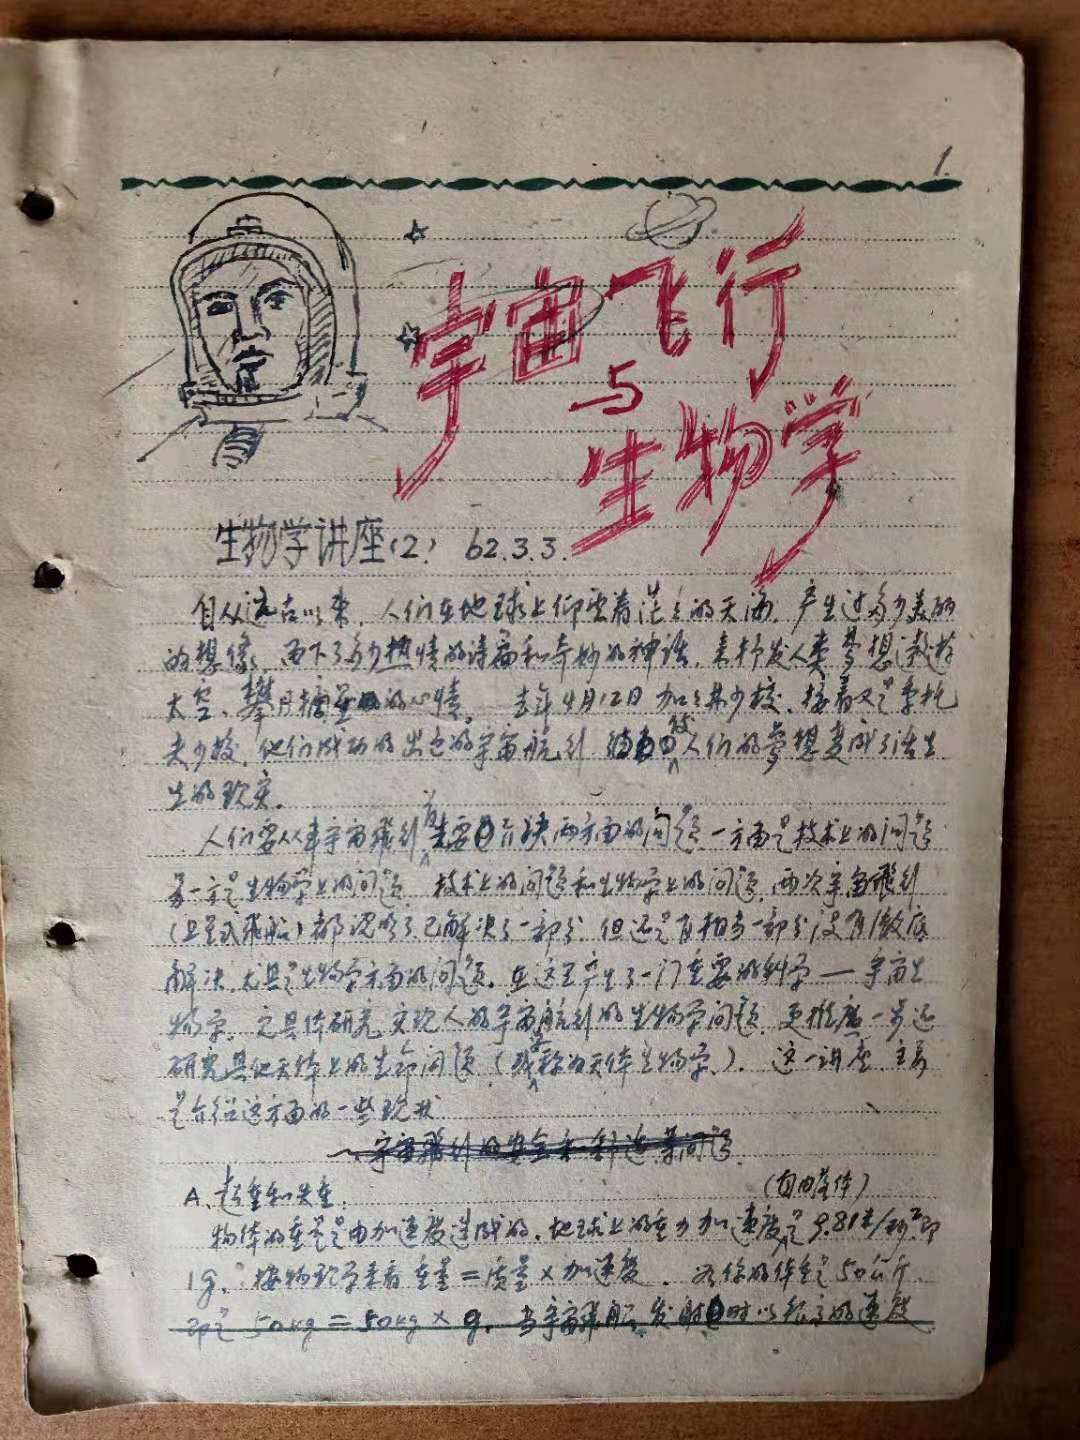 1.
宇宙飞行
与
生物学
生物学讲座(2) 62.3.3.
自从远古以来，人们在地球上仰望着茫茫的天海，产生过多少美丽
的想像，写下了多少热情的诗篇和奇妙的神话，来抒发人类梦想遨游
太空、攀月摘星的心情。去年4月12日加加林少校，接着又是季托
夫少校，他们成功的出色的宇宙航行 使人们的梦想变成了活生
生的现实。
人们要从事宇宙飛行首先要解决两方面的问题，一方面是技术上的问题
另一方是生物学上的问题 技术上的问题和生物学上的问题，两次宇宙飛行
(卫星式飛船)都说明了已解决了一部分，但还是有相当一部分没有徹底
解决，尤其是生物学方面的问题。在这里产生了一门重要的科学——宇宙生
物学。它具体研究实现人的宇宙航行的生物学问题，更推廣一步还
研究其他天体上的生命问题(或称为天体生物学)。这一讲座主要
是介绍这方面的一些现状
一、宇宙飛行的安全和舒适等问题
A、超重和失重。 (自由落体)
物体的重量是由加速度造成的，地球上的重力加速度是9.81米/秒²即
1g。按物理学来看 重量=质量×加速度。 你的体重是50公斤，
即是50kg=50kg×g。当宇宙飛船发射时以 的速度